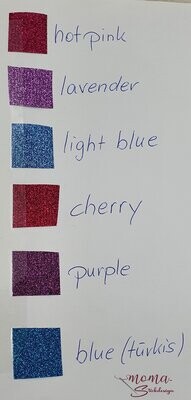 hot pink
lavender
light blue
cherry
purple
blue (türkis)
moma
Stickdesign